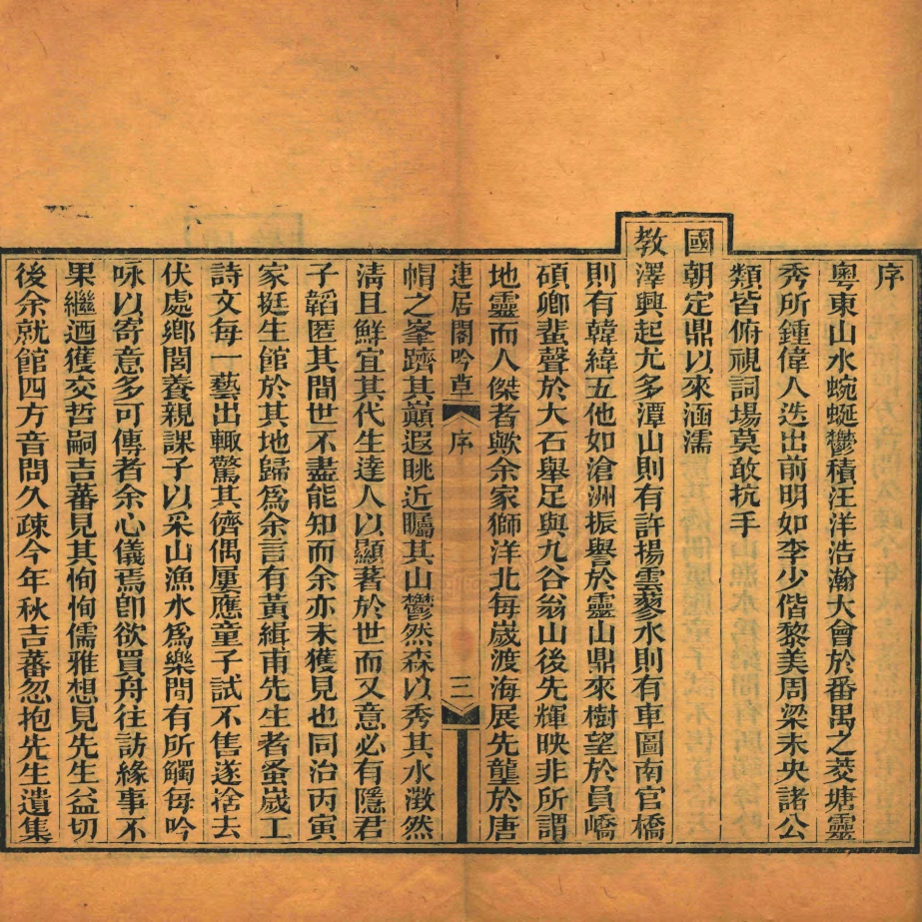 序
粵東山水蜿蜒鬱積汪洋浩瀚大會於番禺之茭塘靈
秀所鍾偉人迭出前明如李少偕黎美周梁未央諸公
類皆俯視詞場莫敢抗手
國朝定鼎以來涵濡
教澤興起尤多潭山則有許揚雲蓼水則有車圖南官橋
則有韓緯五他如滄洲振譽於靈山鼎來樹望於員嶠
碩卿蜚聲於大石舉足與九谷翁山後先輝映非所謂
地靈而人傑者歟余家獅洋北每歲渡海展先龍於唐
連居閣吟草
序
三
帽之峯躋其巔遐眺近矚其山鬱然森以秀其水澂然
淸且鮮宜其代生達人以顯著於世而又意必有隱君
子韜匿其間世不盡能知而余亦未獲見也同治丙寅
家挺生館於其地歸爲余言有黃緝甫先生者蚤歲工
詩文每一藝出輙驚其儕偶屢應童子試不售遂捨去
伏處鄉閭養親課子以采山漁水爲樂間有所觸每吟
咏以寄意多可傳者余心儀焉卽欲買舟往訪緣事不
果繼迺獲交哲嗣吉蕃見其恂恂儒雅想見先生益切
後余就館四方音問久疎今年秋吉蕃忽抱先生遺集